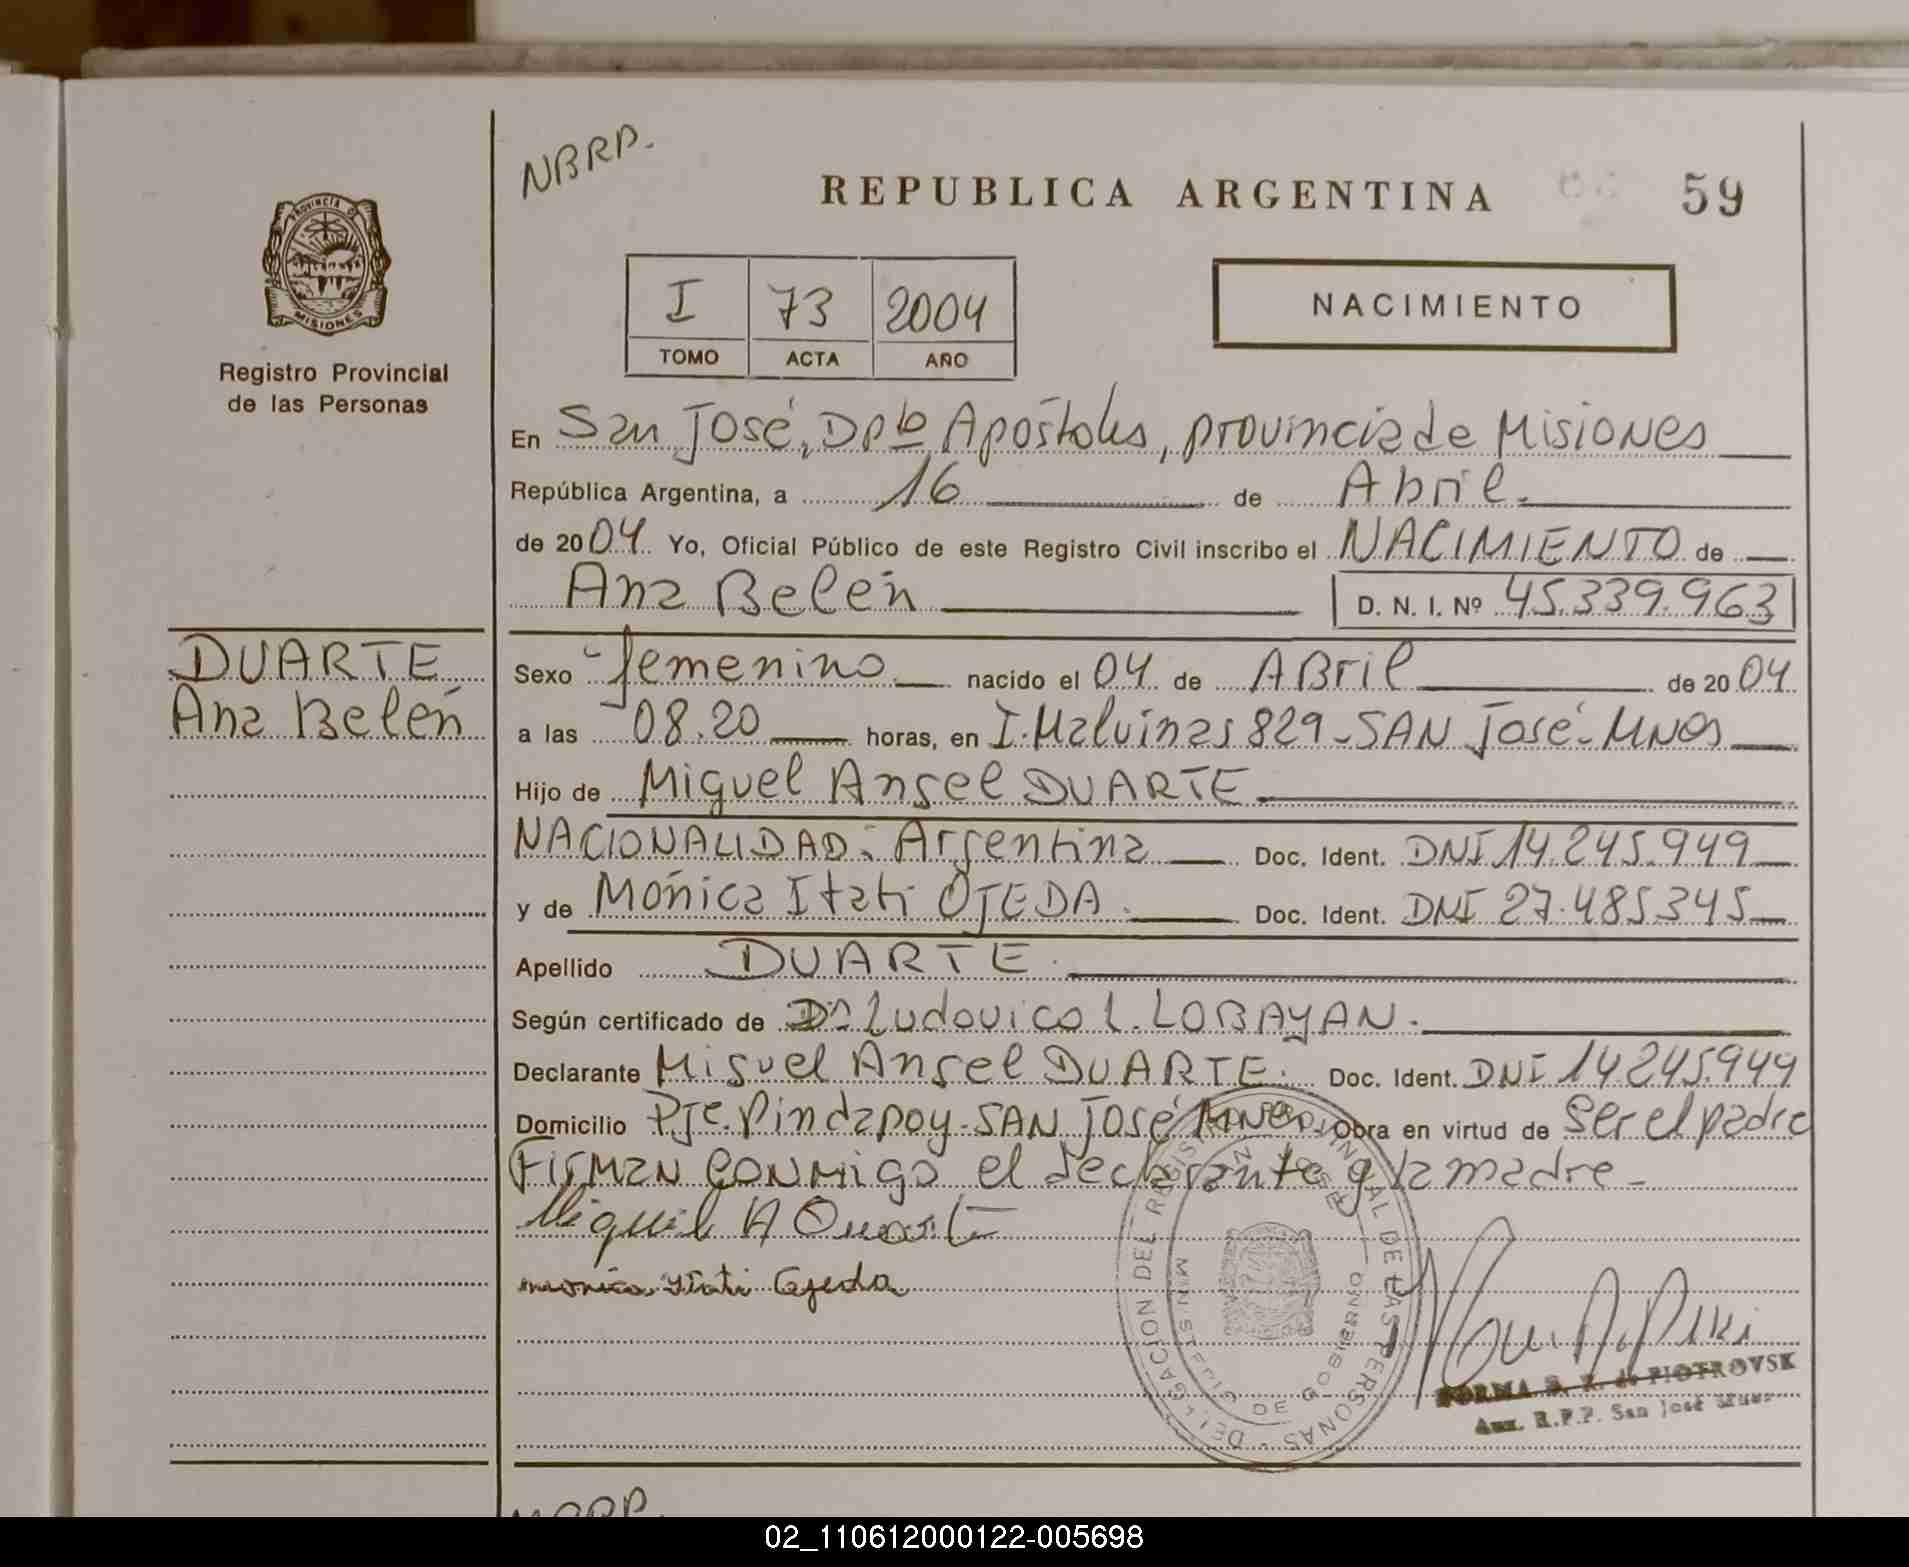 NBRP.
REPUBLICA ARGENTINA
59
PROVINCIA DE
MISIONES
Registro Provincial
de las Personas
I 73 2004
TOMO ACTA AÑO
NACIMIENTO
En San José, Dpto Apóstoles, provincia de Misiones
República Argentina, a 16 de Abril.
de 2004 Yo, Oficial Público de este Registro Civil inscribo el NACIMIENTO de
Ana Belén D. N. I. Nº 45.339.963
DUARTE
Ana Belén
Sexo femenino nacido el 04 de ABril de 2004
a las 08.20 horas, en I. Malvinas 829 - SAN José - MNes
Hijo de Miguel Angel DUARTE
NACIONALIDAD: Argentina Doc. Ident. DNI 14.245.949
y de Mónica Itatí OJEDA. Doc. Ident. DNI 27.485345
Apellido DUARTE.
Según certificado de Dr. Ludovico L. LOBAYAN.
Declarante Miguel Angel DUARTE. Doc. Ident. DNI 14.245.949
Domicilio Pje. Pindapoy - SAN José MNes Obra en virtud de ser el padre
Firman conmigo el declarante y la madre -
Miguel A Duarte
monica Itati Ojeda
DELEGACION DEL REGISTRO PROVINCIAL DE LAS PERSONAS
SAN JOSE
MINISTERIO DE GOBIERNO
NORMA B. R. de PIOTROVSK
Aux. R.P.P. San José Mnes
02_110612000122-005698